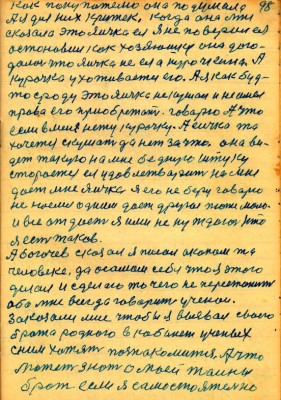 как покупателю она подумала 98
А я для них критек, когда она мне
сказала это яичка ел я не поверил ей
остановил как хозяюшку она дога-
далось что яичка не ела курочена. А
курочка ухоживает его. А я как буд-
то сроду это яичка не кушал и не имел
права его приобретат. говорю А что
если вминя нету курочку. А яичка та
хочется скушат да нет за что, она ви-
дет такую на мне бедную штуку
старается ей удовлетварит
дает мне яичка я его не беру говорю
не ноем одним дает другая пожалом.
и все отдает я ими не нуждаюс кто
я есть таков.
А Вогочев сказал я писал а каком та
человеке, да осамом себя что я этого
делал и сделаю то чего не перетопит
обо мне всегда говорит ученои.
Заказали мне чтобы я вызвал своего
брата родного в кабинет ученых
с ним хотят познакомится. А что
может знат о моей таины
брат если я самостоятелно